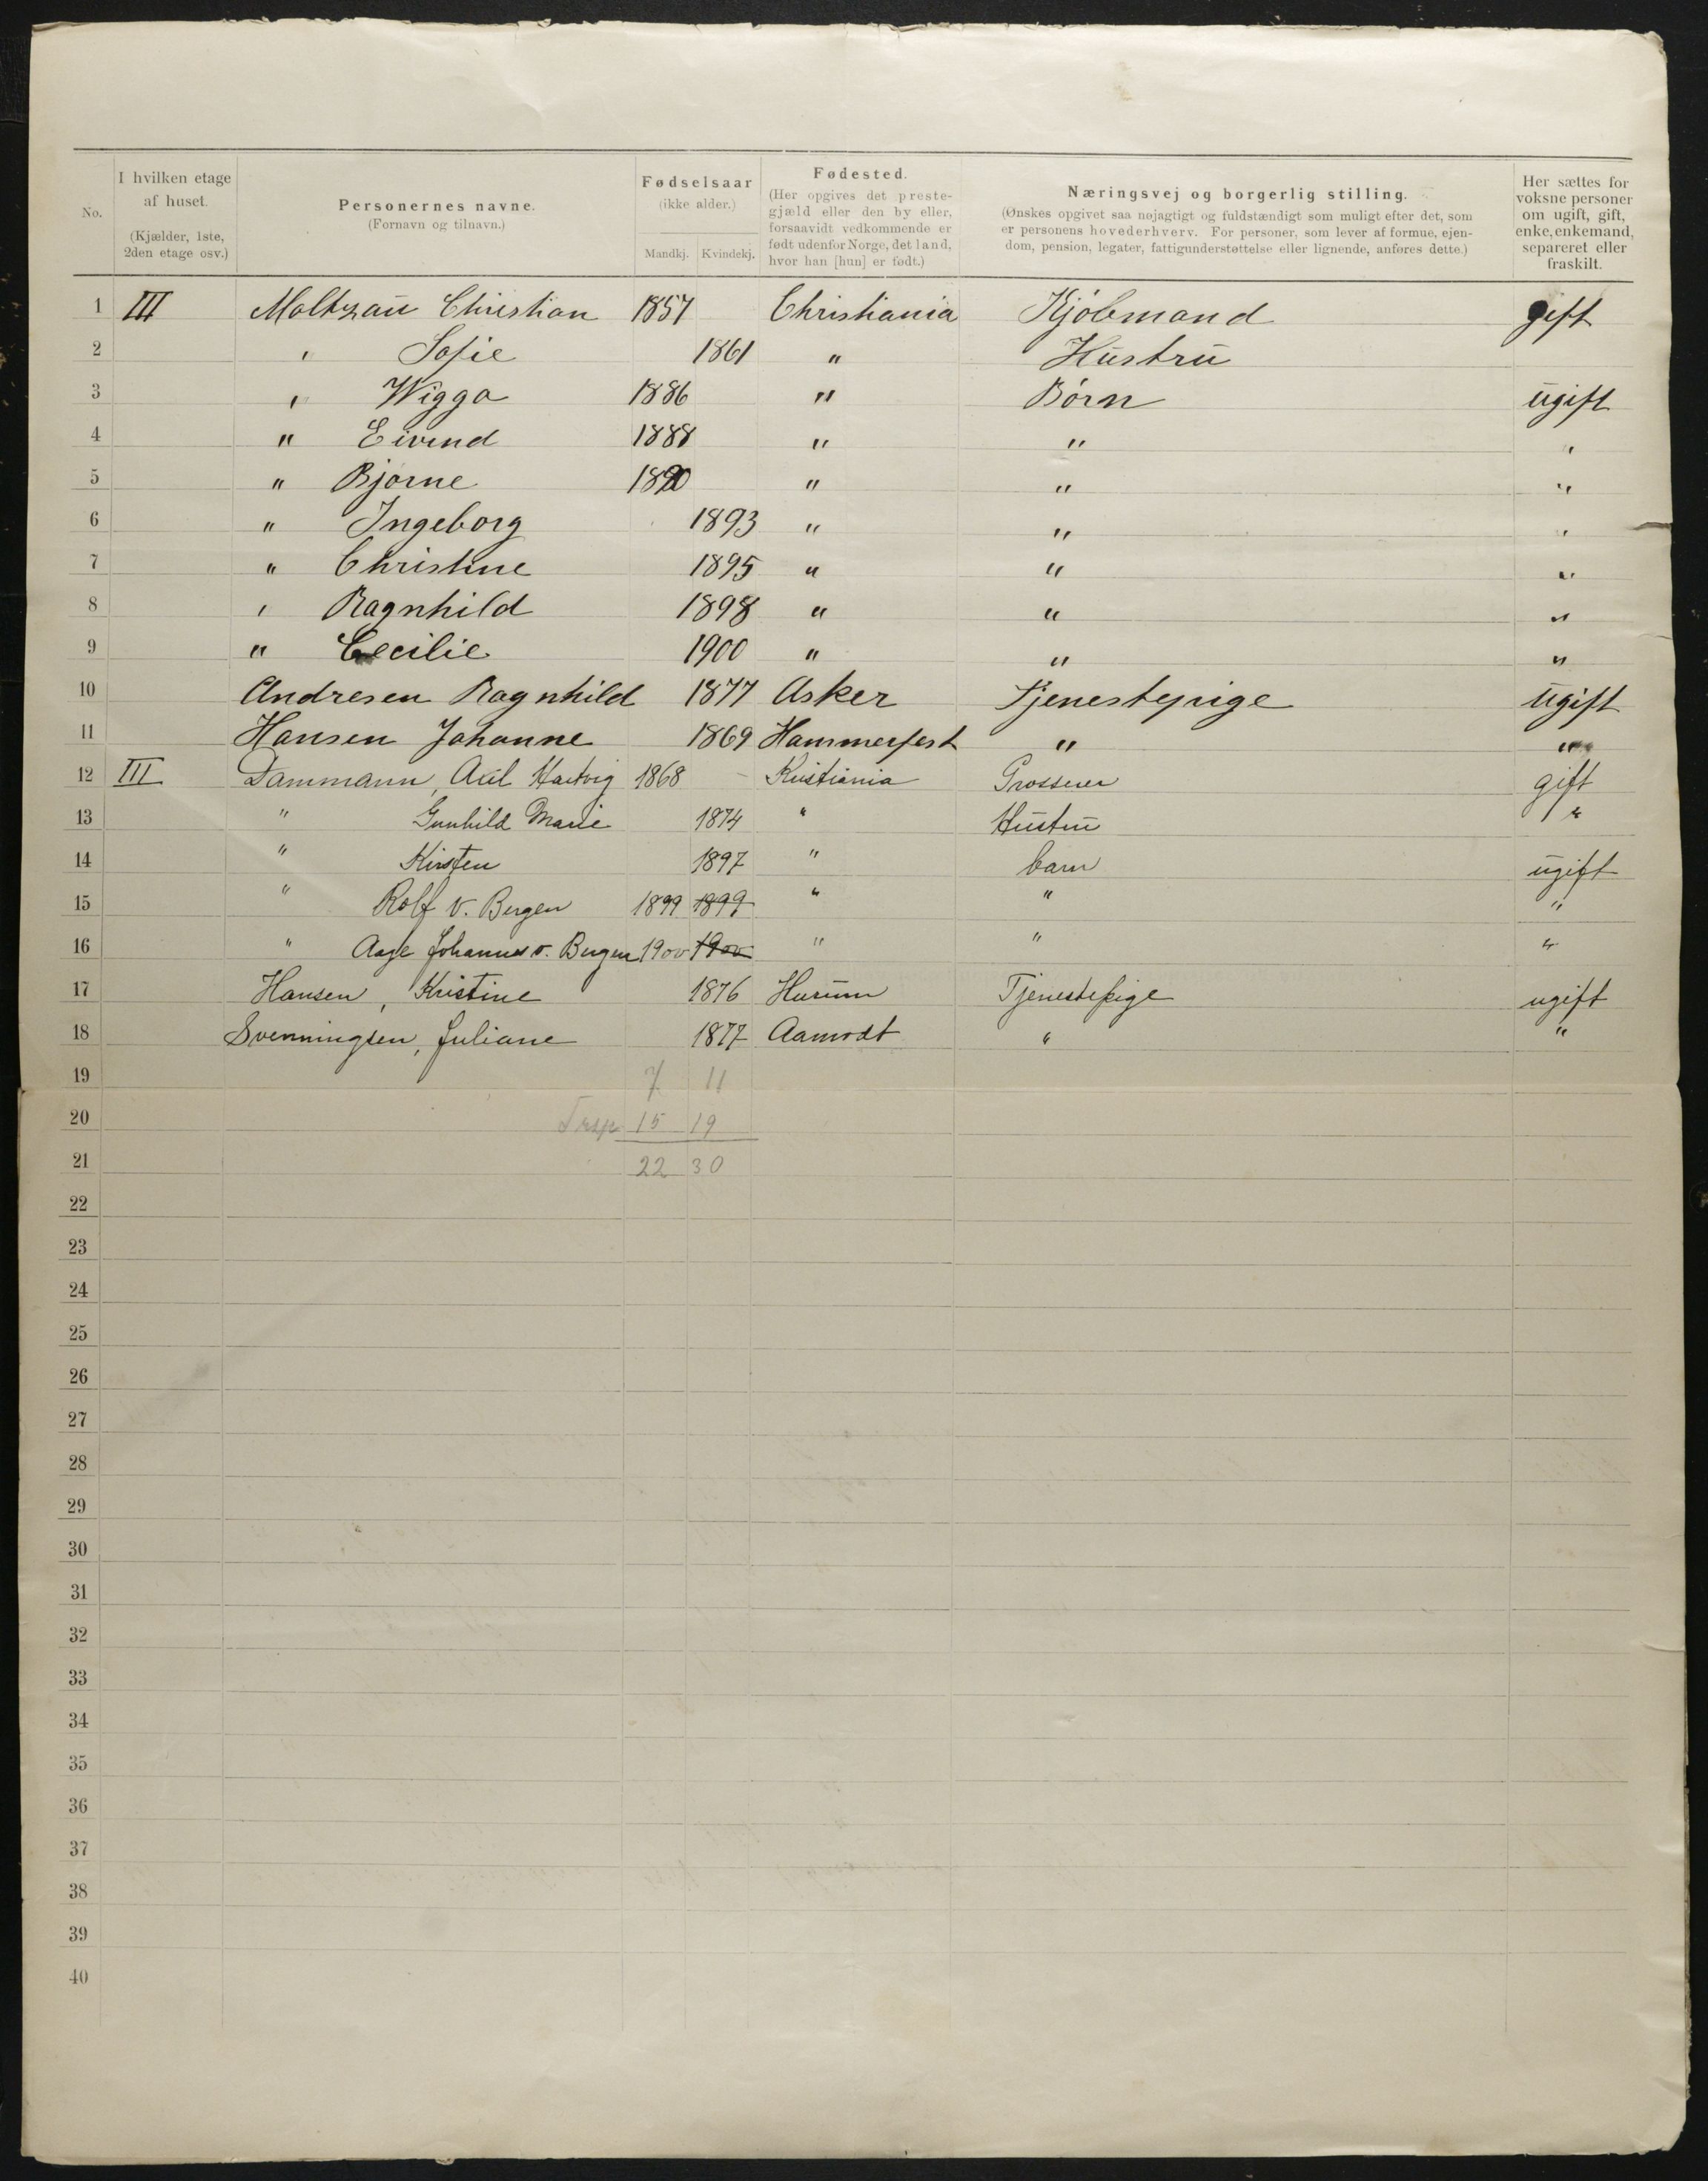 No.
I hvilken etage af huset. (Kjælder, 1ste, 2den etage osv.)
Personernes navne. (Fornavn og tilnavn.)
Fødselsaar (ikke alder.)
Mandkj. Kvindekj.
Fødested. (Her opgives det prestegjæld eller den by eller, forsaavidt vedkommende er født udenfor Norge, det land, hvor han [hun] er født.)
Næringsvej og borgerlig stilling. (Ønskes opgivet saa nøjagtigt og fuldstændigt som muligt efter det, som er personens hovederhverv. For personer, som lever af formue, ejendom, pension, legater, fattigunderstøttelse eller lignende, anføres dette.)
Her sættes for voksne personer om ugift, gift, enke, enkemand, separeret eller fraskilt.
1 III Maltzau Christian 1857 Christiania Kjöbmand gift
2 " Sofie 1861 " Hustru
3 " Wigga 1886 " Börn ugift
4 " Eivind 1888 " " "
5 " Bjarne 1890 " " "
6 " Ingeborg 1893 " " "
7 " Christine 1895 " " "
8 " Ragnhild 1898 " " "
9 " Cecilie 1900 " " "
10 Andresen Ragnhild 1877 Asker Tjenestepige ugift
11 Hansen Johanne 1869 Hammerfest " "
12 III Dammann, Axil Hartvig 1868 – Kristiania Grosserer gift
13 " Gunhild Marie 1874 " Hustru "
14 " Kirsten 1897 " barn ugift
15 " Rolf v. Bergen 1899 1899 " " "
16 " Aage Johannes v. Bergen 1900 1900 " " "
17 Hansen, Kristine 1876 Hurum Tjenestepige ugift
18 Svenningsen, Juliane 1877 Aamodt " "
19 7 11
20 Trsp 15 19
21 22 30
22
23
24
25
26
27
28
29
30
31
32
33
34
35
36
37
38
39
40